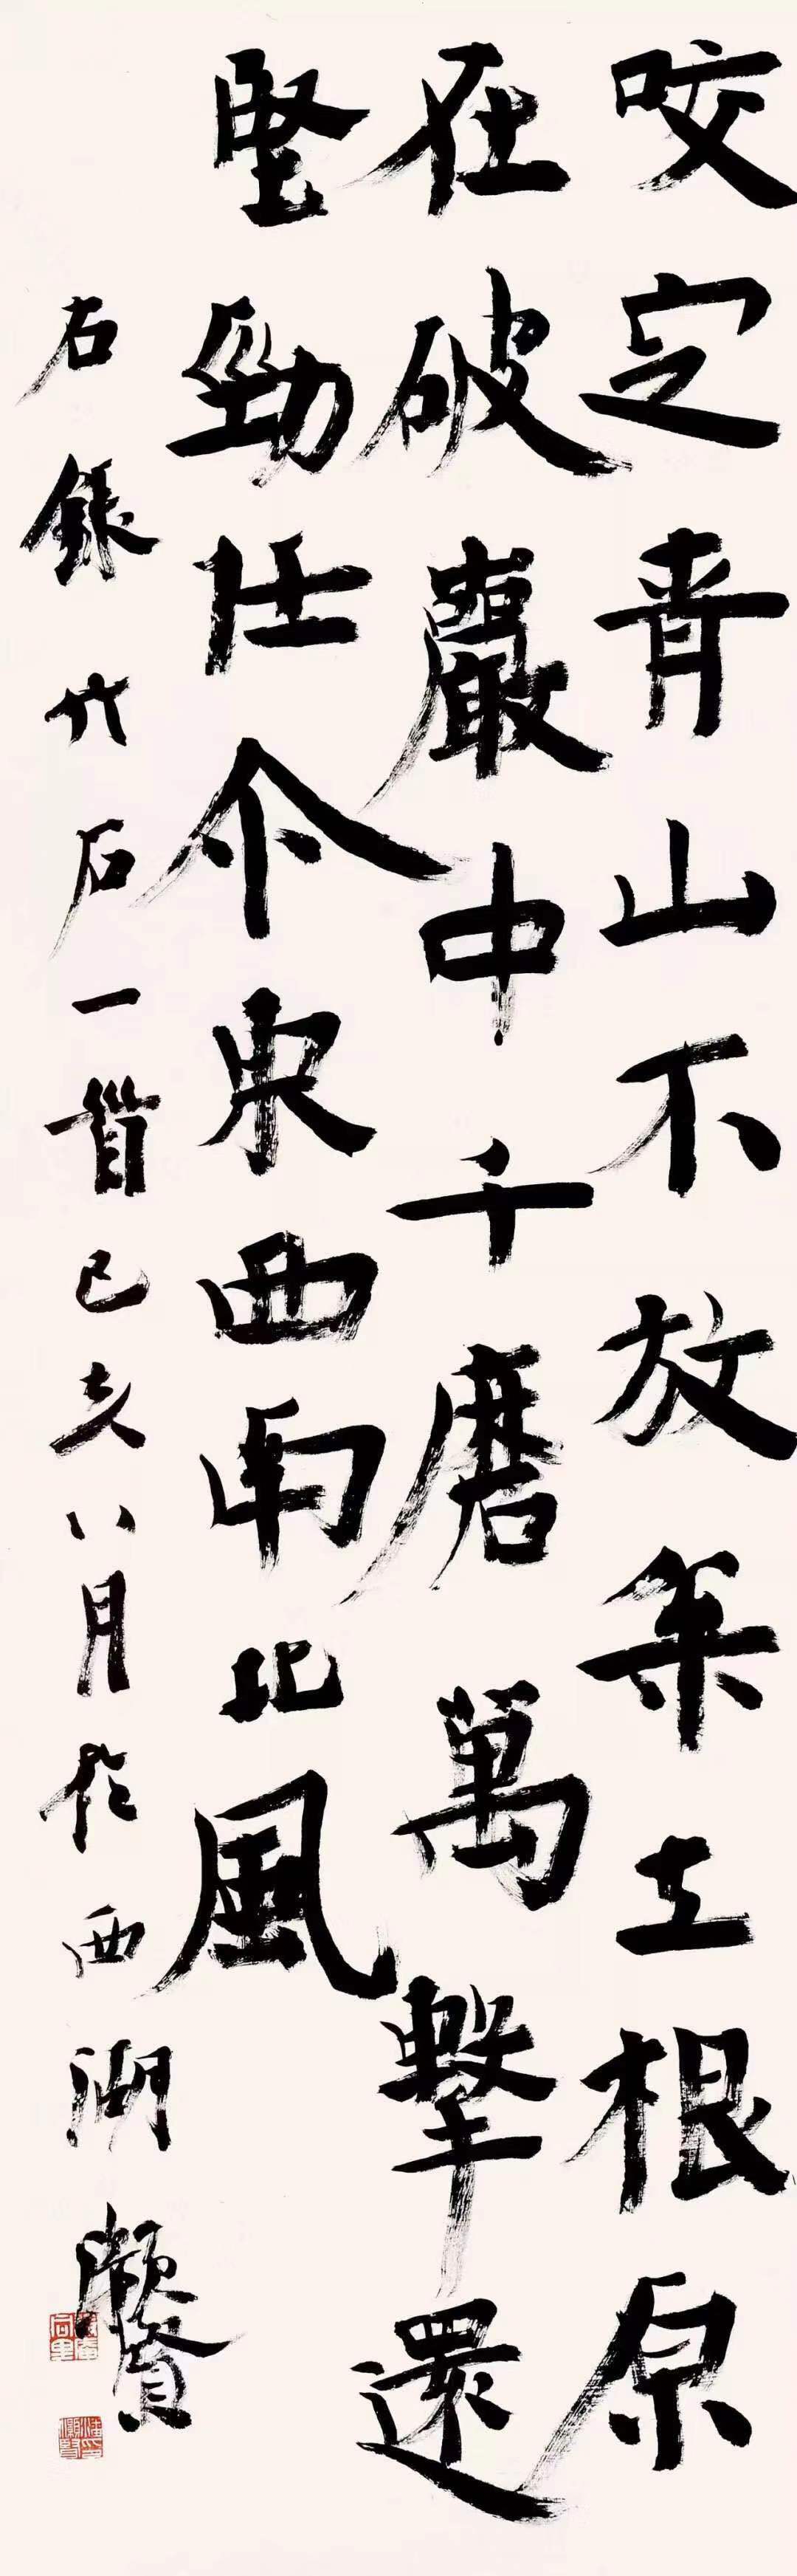 咬定青山不放枀立根原
在破巖中千磨萬擊還
堅勁任尒東西南北風
右錄竹石一首己亥八月於西湖